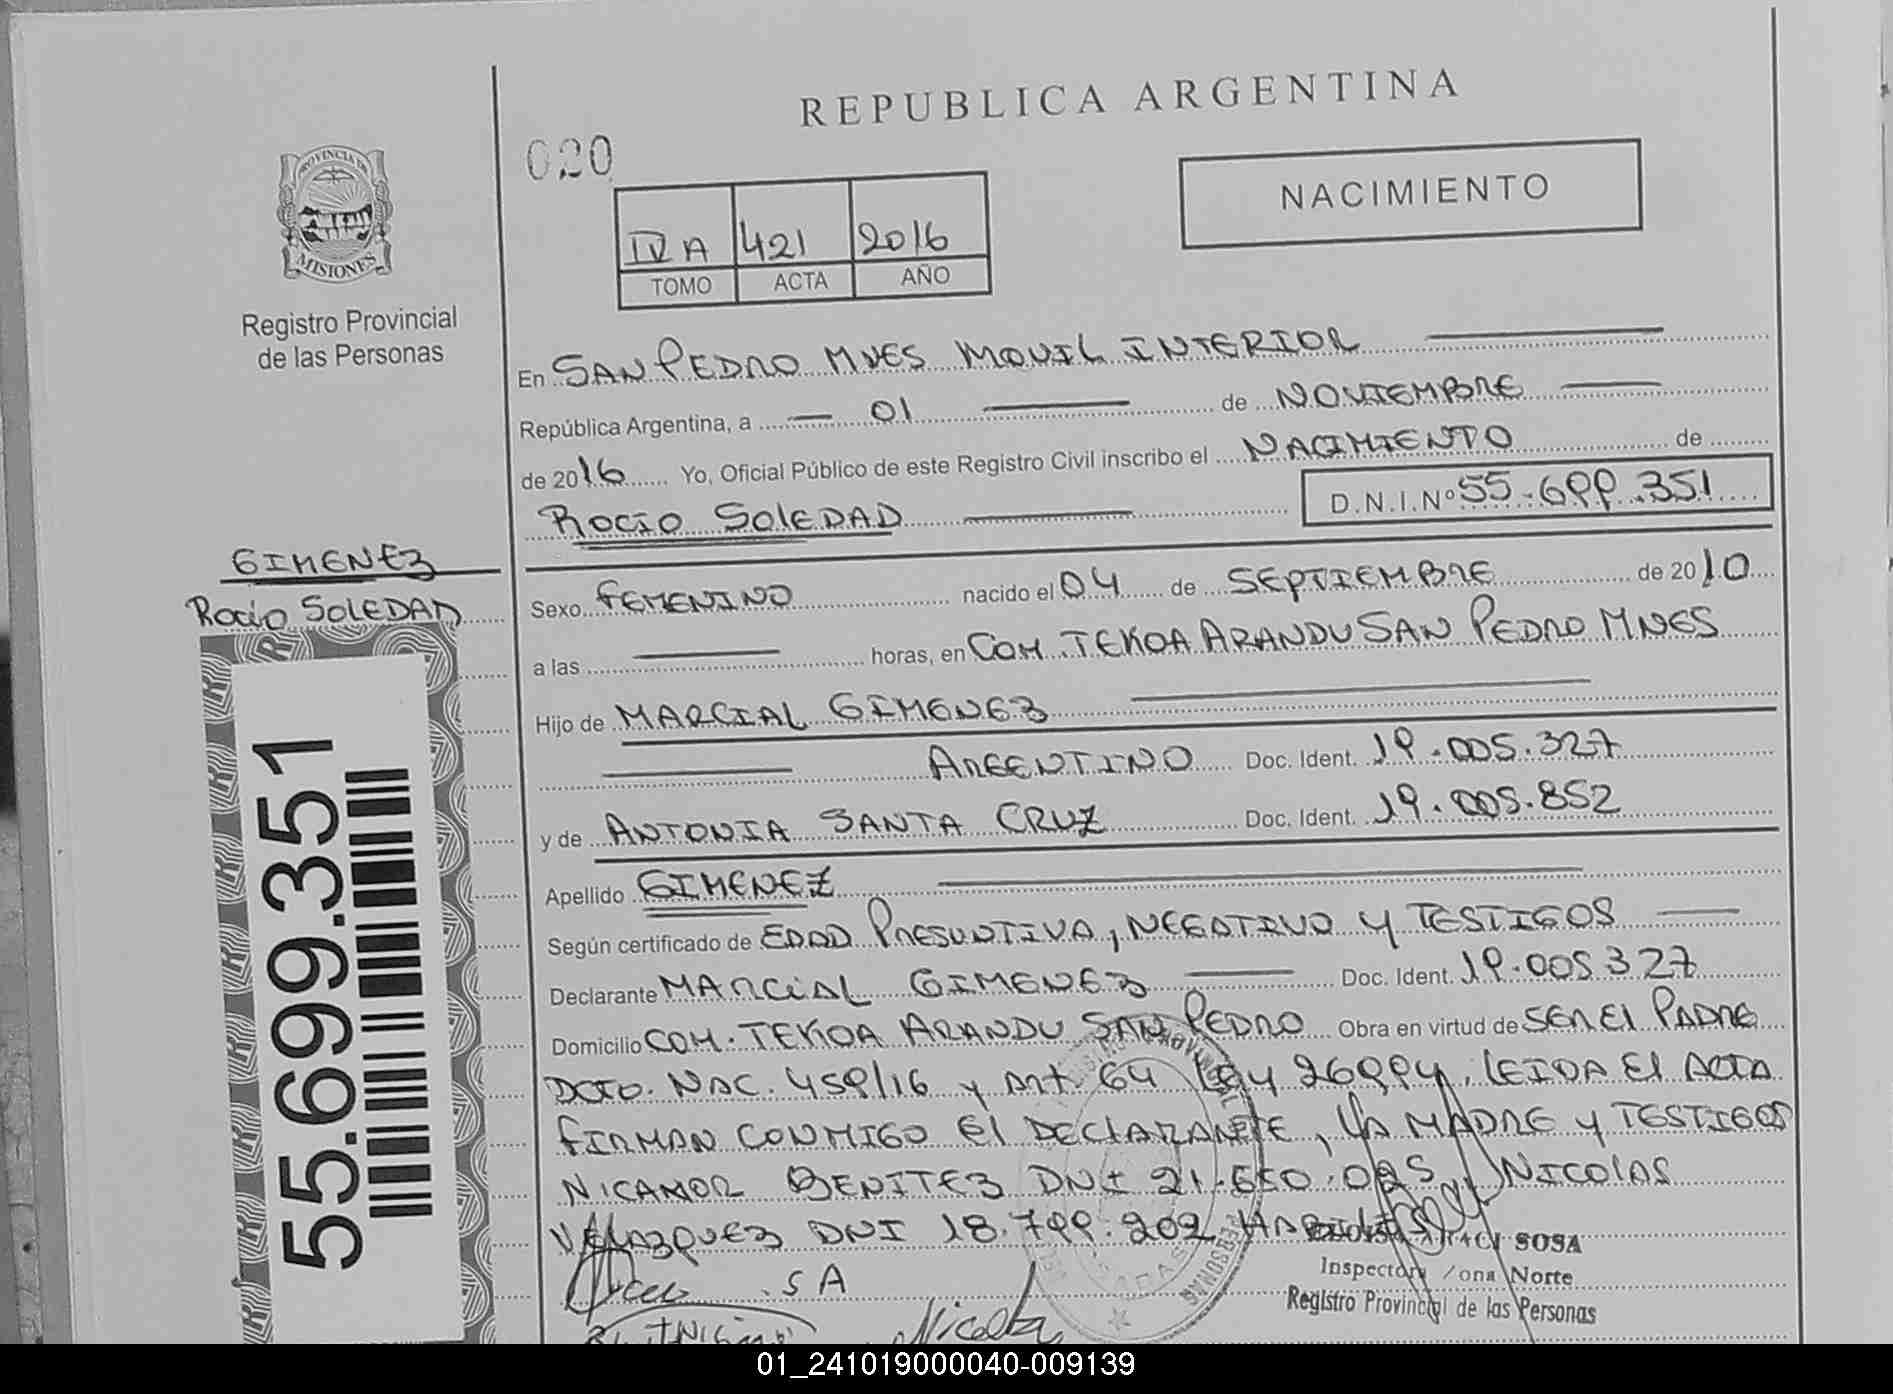 REPUBLICA ARGENTINA
020
NACIMIENTO
PROVINCIA DE
MISIONES
Registro Provincial
de las Personas
IV A 421 2016
TOMO ACTA AÑO
En SAN PEDRO MNES MOVIL INTERIOR
República Argentina, a 01 de NOVIEMBRE
de 2016 Yo, Oficial Público de este Registro Civil inscribo el NACIMIENTO de
ROCIO SOLEDAD D.N.I.Nº 55.699.351
GIMENEZ
ROCIO SOLEDAD
Sexo FEMENINO nacido el 04 de SEPTIEMBRE de 2010
a las horas, en COM. TEKOA ARANDU SAN PEDRO MNES
Hijo de MARCIAL GIMENEZ
ARGENTINO Doc. Ident. 19.005.327
y de ANTONIA SANTA CRUZ Doc. Ident. 19.005.852
Apellido GIMENEZ
Según certificado de EDAD PRESUNTIVA, NEGATIVO Y TESTIGOS
Declarante MARCIAL GIMENEZ Doc. Ident. 19.005327
Domicilio COM. TEKOA ARANDU SAN PEDRO Obra en virtud de SER EL PADRE
DCTO. NAC. 459/16 y Art 64 Ley 26994, LEIDA EL ACTA
FIRMAN CONMIGO EL DECLARANTE, LA MADRE Y TESTIGOS
NICAMOR BENITEZ DNI 21.650.025, NICOLAS
VELAZQUEZ DNI 18.799.202
SOSA
Inspectora Zona Norte
Registro Provincial de las Personas
S A
55.699.351
01_241019000040-009139